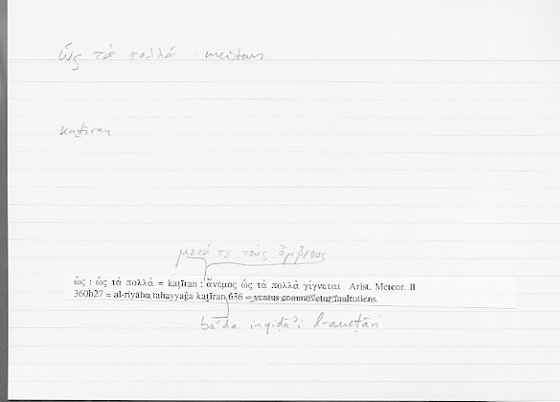 ὡς τὰ πολλά : meistens
kaṯīran
μετά τε τοὺς ὄμβρους
ὡς : ὡς τὰ πολλὰ = kaṯīran : ἄνεμος ὡς τὰ πολλὰ γίγνεται Arist. Meteor. II
360b27 = al-riyāḥu tahayyaǧa kaṯīran 636 = ventus commovetur multotiens.
baʿda inqiḍāʾi l-amṭāri